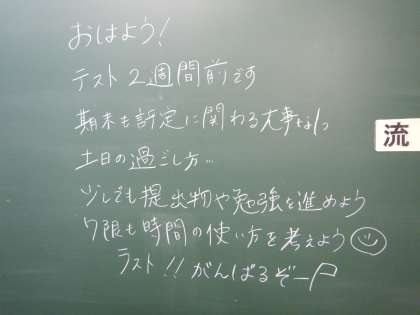 おはよう！
テスト2週間前です
期末も評定に関わる大事な1つ
土日の過ごし方…
少しでも提出物や勉強を進めよう
7限も時間の使い方を考えよう
ラスト!! がんばるぞー
流